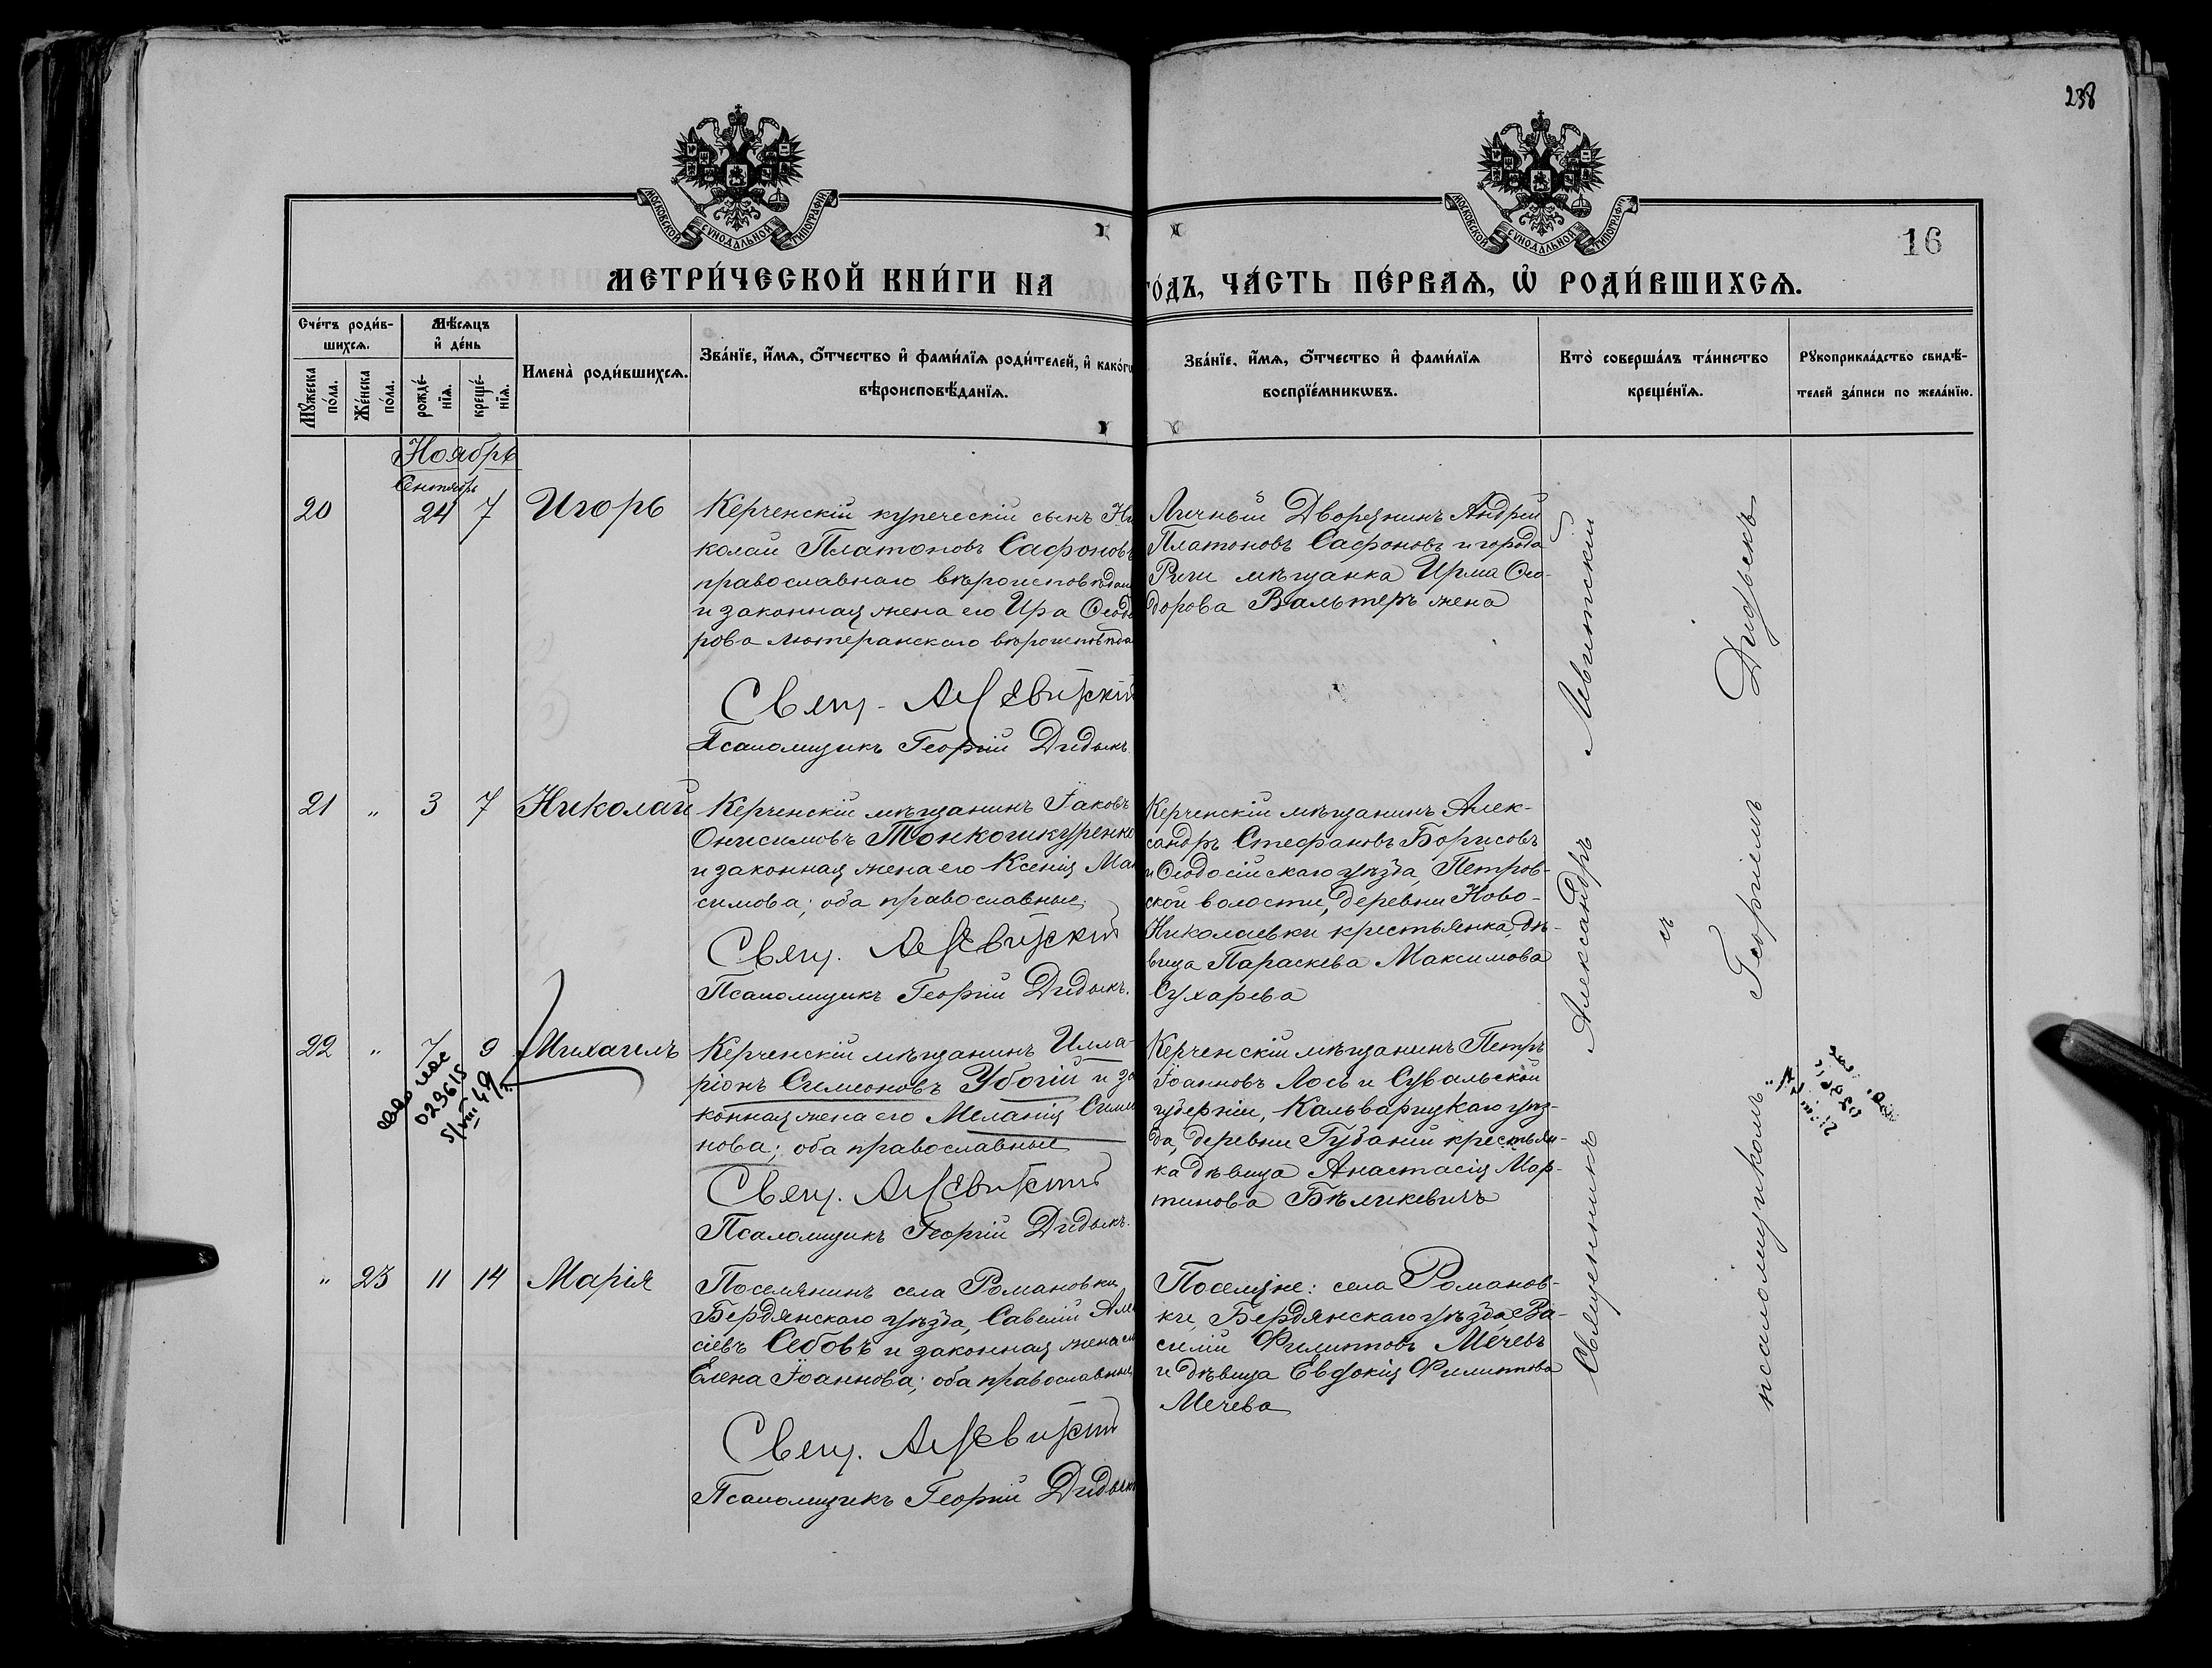 238
МОСКОВСКОЙ СѴНОДАЛЬНОЙ ТИПОГРАФІИ
МОСКОВСКОЙ СѴНОДАЛЬНОЙ ТИПОГРАФІИ
16
МЕТРИ́ЧЕСКОЙ КНИ́ГИ НА
ГО́ДЪ, ЧА́СТЬ ПЕ́РВАѦ, Ѡ҆ РОДИ́ВШИХСѦ.
Сче́тъ роди́в-
шихсѧ.
Мꙋ́жеска по́ла.
Же́нска по́ла.
Мѣ́сѧцъ
и҆ де́нь
рожде́-
нїѧ.
креще́-
нїѧ.
Имена̀ роди́вшихсѧ.
Зва́нїе, и҆́мѧ, ѻ҆́тчество и҆ фами́лїѧ роди́телей, и҆ како́гѡ
вѣроисповѣ́данїѧ.
Зва́нїе, и҆́мѧ, ѻ҆́тчество и҆ фами́лїѧ
воспрїе́мникѡвъ.
Кто̀ соверша́лъ та́инство
креще́нїѧ.
Рꙋкоприкла́дство свидѣ́-
телей за́писи по жела́нїю.
Ноябрь
Сентябрь
20 24 7 Игорь
Керченскій купеческій сынъ Ни
колай Платоновъ Сафоновъ
православнаго вѣроисповѣдан
и законная жена его Ира Ѳеодо
рова лютеранскаго вѣроисповѣда
Свящ. Ал Левитскій
Псаломщикъ Георгій Дидыкъ.
Личный Дворянинъ Андрей
Платоновъ Сафоновъ и города
Риги мѣщанка Ирма Ѳео-
дорова Вальтеръ жена
21 " 3 7 Николай
Керченскій мѣщанинъ Іаковъ
Онисимовъ Тонкошкуренко
и законная жена его Ксенія Мак
симова; оба православные.
Свящ. Ал Левитскій
Псаломщикъ Георгій Дидыкъ.
Керченскій мѣщанинъ Алек-
сандръ Стефановъ Борисовъ
и Ѳеодосійскаго уѣзда, Петров-
ской волости, деревни Ново-
Николаевки крестьянка, дѣ-
вица Параскева Максимова
Сухарева
22 " 7 9 Михаилъ
029615
5/VIII 49 г.
Керченскій мѣщанинъ Илла-
ріонъ Симеоновъ Убогій и за
конная жена его Меланія Симео
нова; оба православные
Свящ. Ал Левитскій
Псаломщикъ Георгій Дидыкъ.
Керченскій мѣщанинъ Петръ
Іоанновъ Лось и Сувальской
губерніи, Кальварицкаго уѣз-
да, деревни Губаніи крестьян-
ка дѣвица Анастасія Мар-
тинова Бѣликевичъ
" 23 11 14 Марія
Поселянинъ села Романовки,
Бердянскаго уѣзда, Савелій Але
сіевъ Себовъ и законная жена его
Елена Іоаннова; оба православные
Свящ. Ал Левитскій
Псаломщикъ Георгій Дидыкъ
Поселяне: села Романов-
ки, Бердянскаго уѣзда, Ва-
силій Филипповъ Мечевъ
и дѣвица Евдокія Филиппова
Мечева
Священникъ Александръ Левитскій
съ
псаломщикомъ Георгіемъ Дидыкъ